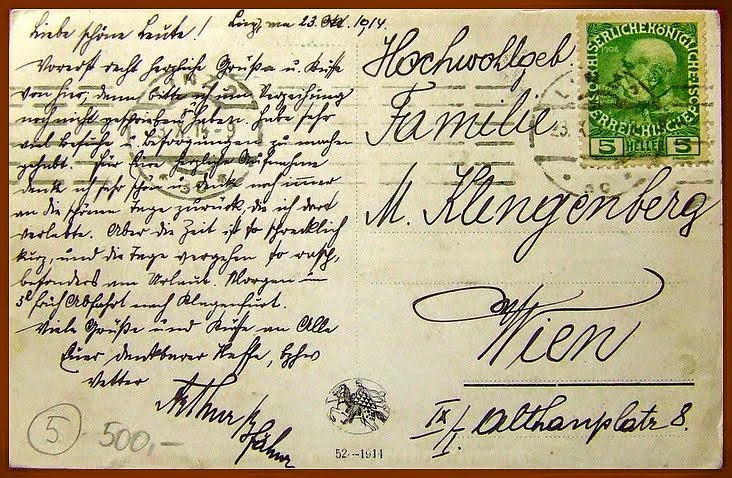 Linz, am 23. Okt. 1914.
Liebe schöne Leute!
Vorerst recht herzliche Grüße u. Küsse
von hier, denn bitte um Verzeihung
noch nicht geschrieben zu haben. Habe sehr
viel Besuche u. Besorgungen zu machen
gehabt. Für Eure herzliche Aufnahme
danke ich sehr schön u. denke noch immer
an die schönen Tage zurück, die ich dort
verlebte. Aber die Zeit ist so schrecklich
kurz, und die Tage vergehen so rasch,
besonders am Urlaub. Morgen um
5h früh Abfahrt nach Klagenfurt.
Viele Grüße und Küsse an Alle
Euer dankbarer Neffe,
Vetter
Arthur
Hochwohlgeb.
Familie
M. Klingenberg
Wien
IX/1. Althanplatz 8.
KAISERLICHE KÖNIGLICHE
ÖSTERREICHISCHE
1908
5 HELLER 5
23.X.14-9
23.X
5
500,-
52--1914